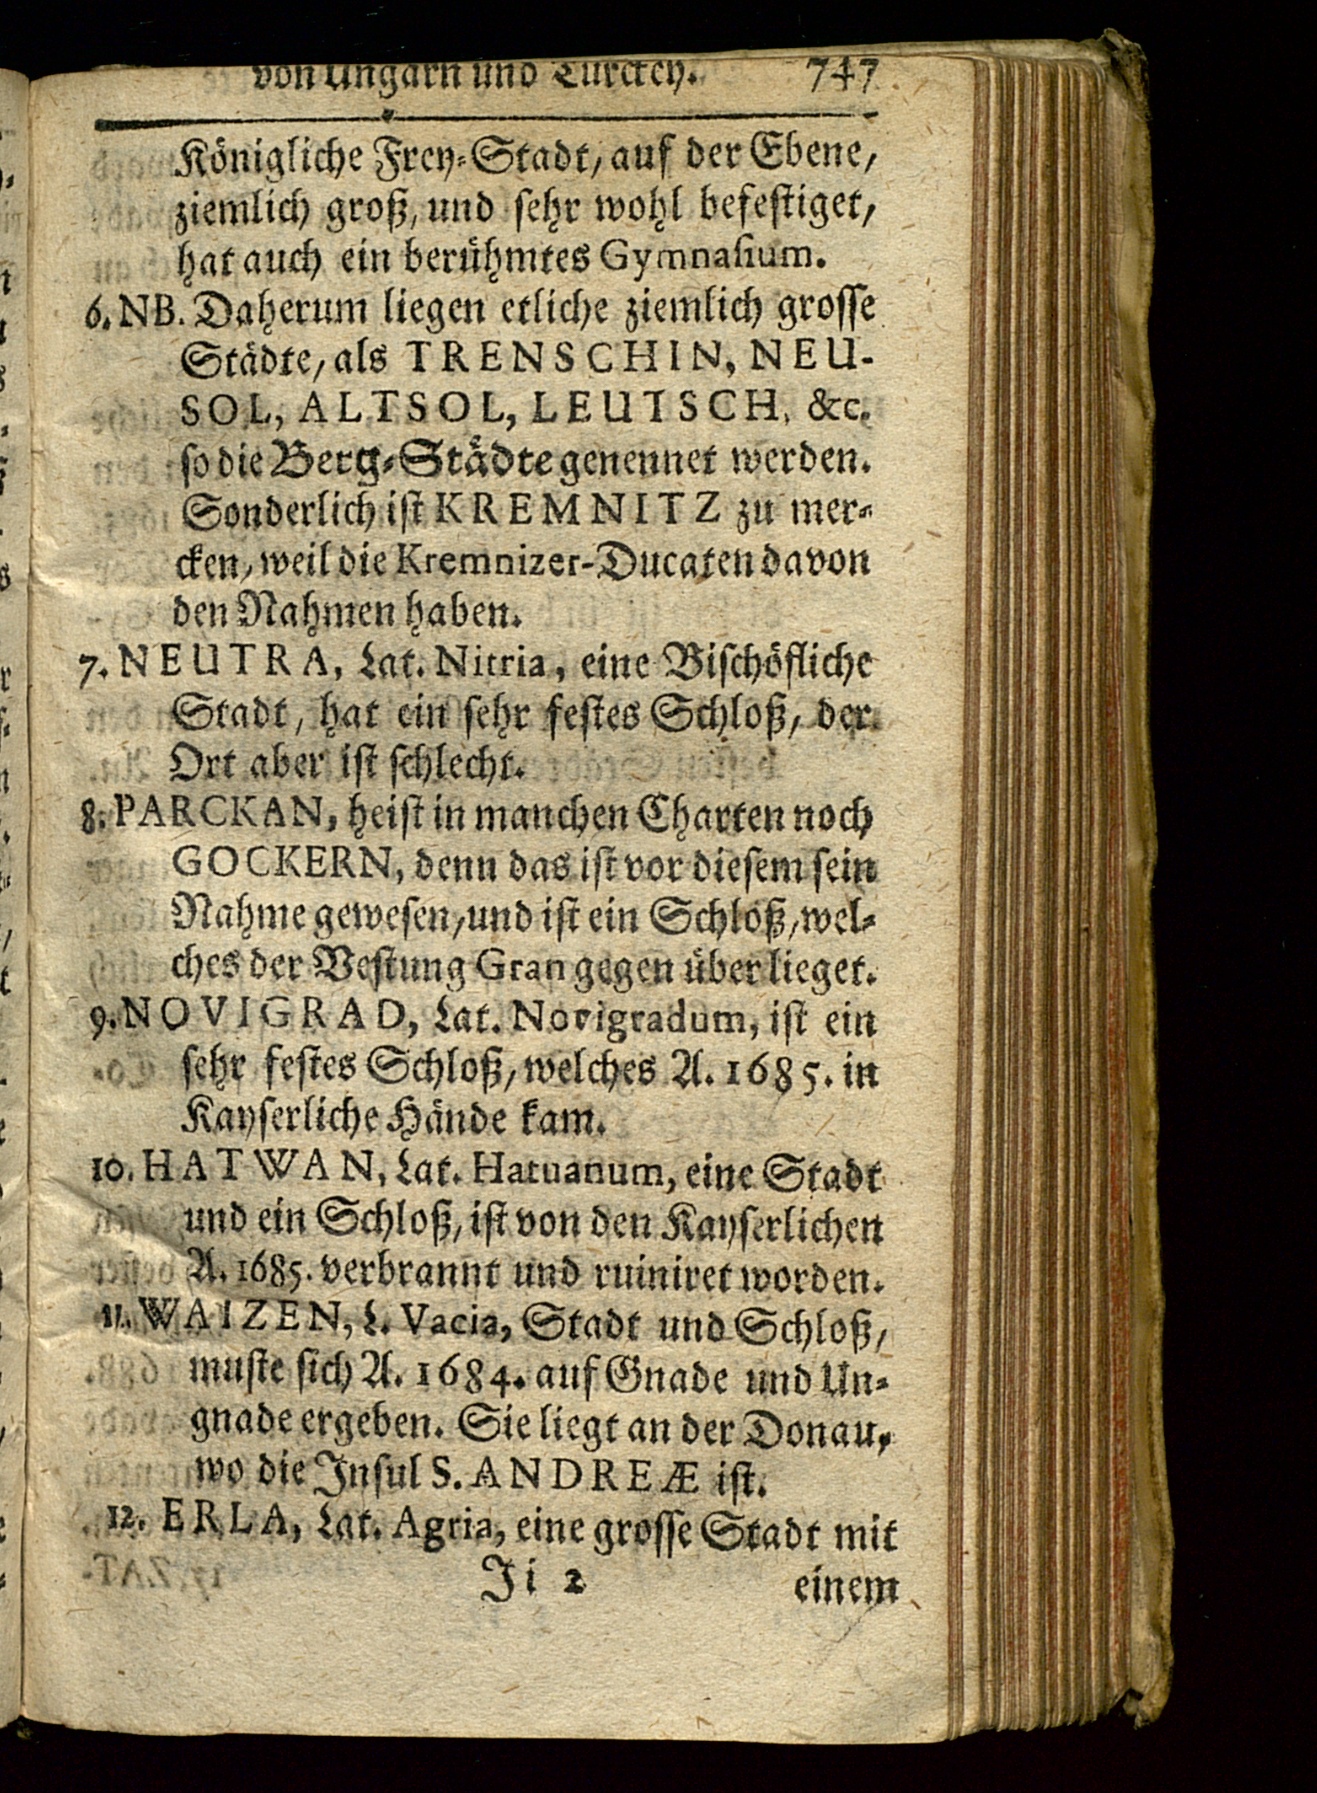 von Ungarn und Türckey. 747
Königliche Frey-Stadt, auf der Ebene,
ziemlich groß, und sehr wohl befestiget,
hat auch ein berühmtes Gymnasium.
6. NB. Daherum liegen etliche ziemlich grosse
Städte, als TRENSCHIN, NEU-
SOL, ALTSOL, LEUTSCH, &c.
so die Berg-Städte genennet werden.
Sonderlich ist KREMNITZ zu mer-
cken, weil die Kremnizer-Ducaten davon
den Nahmen haben.
7. NEUTRA, Lat. Nitria, eine Bischöfliche
Stadt, hat ein sehr festes Schloß, der
Ort aber ist schlecht.
8. PARCKAN, heist in manchen Charten noch
GOCKERN, denn das ist vor diesem sein
Nahme gewesen, und ist ein Schloß, wel-
ches der Vestung Gran gegen über lieget.
9. NOVIGRAD, Lat. Novigradum, ist ein
sehr festes Schloß, welches A. 1685. in
Kayserliche Hände kam.
10. HATWAN, Lat. Hatuanum, eine Stadt
und ein Schloß, ist von den Kayserlichen
A. 1685. verbrannt und ruiniret worden.
11. WAIZEN, L. Vacia, Stadt und Schloß,
muste sich A. 1684. auf Gnade und Un-
gnade ergeben. Sie liegt an der Donau,
wo die Insul S. ANDREÆ ist.
12. ERLA, Lat. Agria, eine grosse Stadt mit
Ii 2 einem